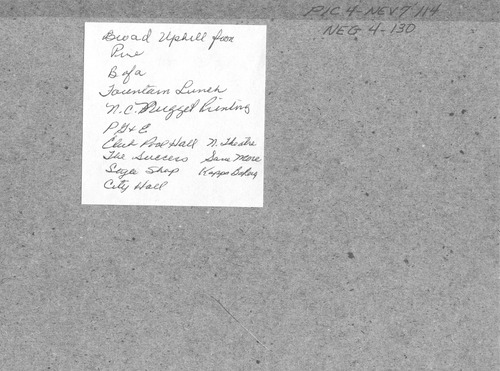 PIC 4-NEV 7 114
NEG 4-130
Broad Uphill from
Pine
B of a
Fountain Lunch
N.C. Nugget Printing
P G & E
Club Pool Hall N. Theatre
The Success Save More
Shop Kopps Bakery
City Hall